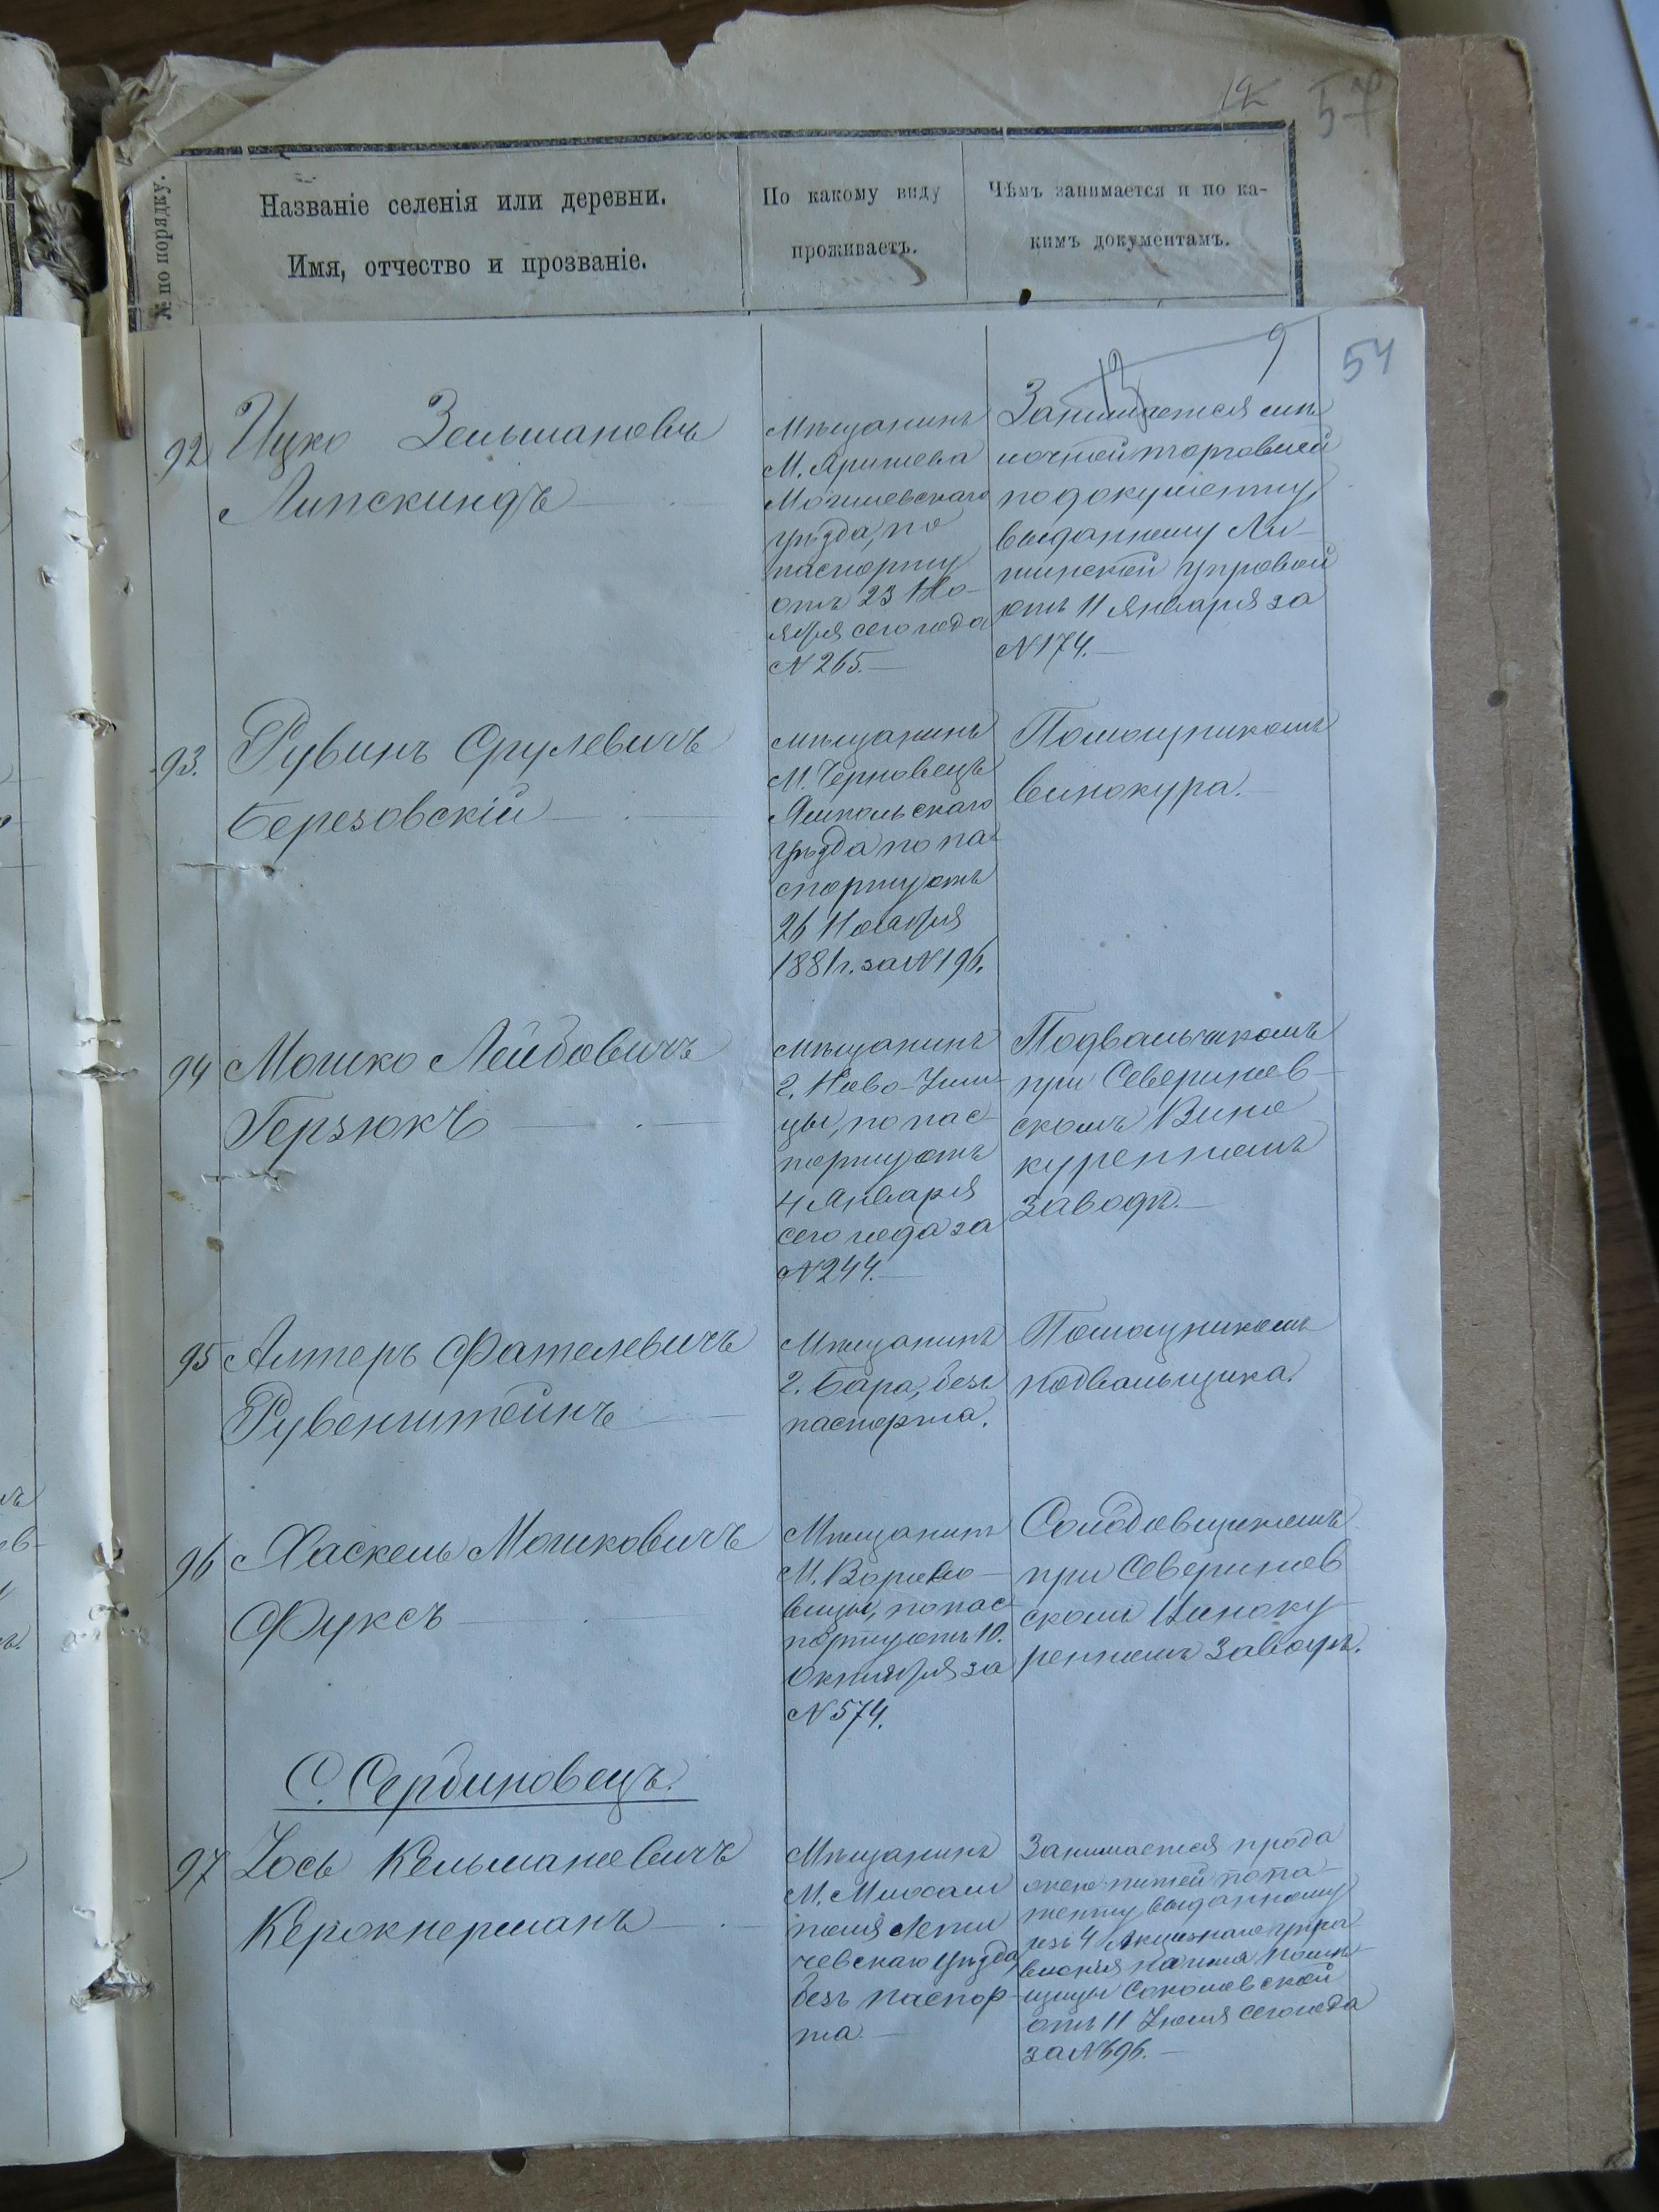 12 57
№ по порядку.
Названіе селенія или деревни.
Имя, отчество и прозваніе.
По какому виду
проживаетъ.
Чѣмъ занимается и по ка-
кимъ документамъ.
54
9
92 Ицко Зельмановъ
Липскиндъ
Мѣщанинъ
М. Яришева
Могилевскаго
уѣзда, по
паспорту
отъ 23 Но-
ября сего года
N 265.
Занимается
торговлей
по документу
выданному Ли-
тинской управой
отъ 11 Января за
N 174.
93. Рувинъ Срулевичъ
Березовскій
Мѣщанинъ
М. Черновецъ
Ямпольскаго
уѣзда по па-
спорту отъ
26 Ноября
1881 г. за N 196.
Помощникомъ
винокура.
94 Мошко Лейбовичъ
Герзюкъ
Мѣщанинъ
г. Ново-Уши-
цы, по пас-
порту отъ
4 Января
сего года за
N 244.
Подвальчикомъ
при Северинов-
скомъ Вино
куренномъ
заводѣ.
95 Алтеръ Фателевичъ
Рувенштейнъ
Мѣщанинъ
г. Бара, безъ
паспорта.
Помощникомъ
подвальщика.
96 Хаскель Мошковичъ
Фуксъ
Мѣщанинъ
М.
вицы, по пас-
порту отъ 10.
Октября за
N 574.
Солодовщикомъ
при Северинов
скомъ Виноку-
ренномъ заводѣ.
С. Сербиновецъ.
97 Іось Кельмановичъ
Кержнерманъ
Мѣщанинъ
М. Михам
поля Лети
чевскаго уѣзда,
безъ паспор-
та.
Занимается прода
жею питей по па-
тенту выданному
изъ 4 Акцизнаго упра
вленія на имя помѣ-
щицы Соколовской
отъ 11 Іюля сего года
за N 696.